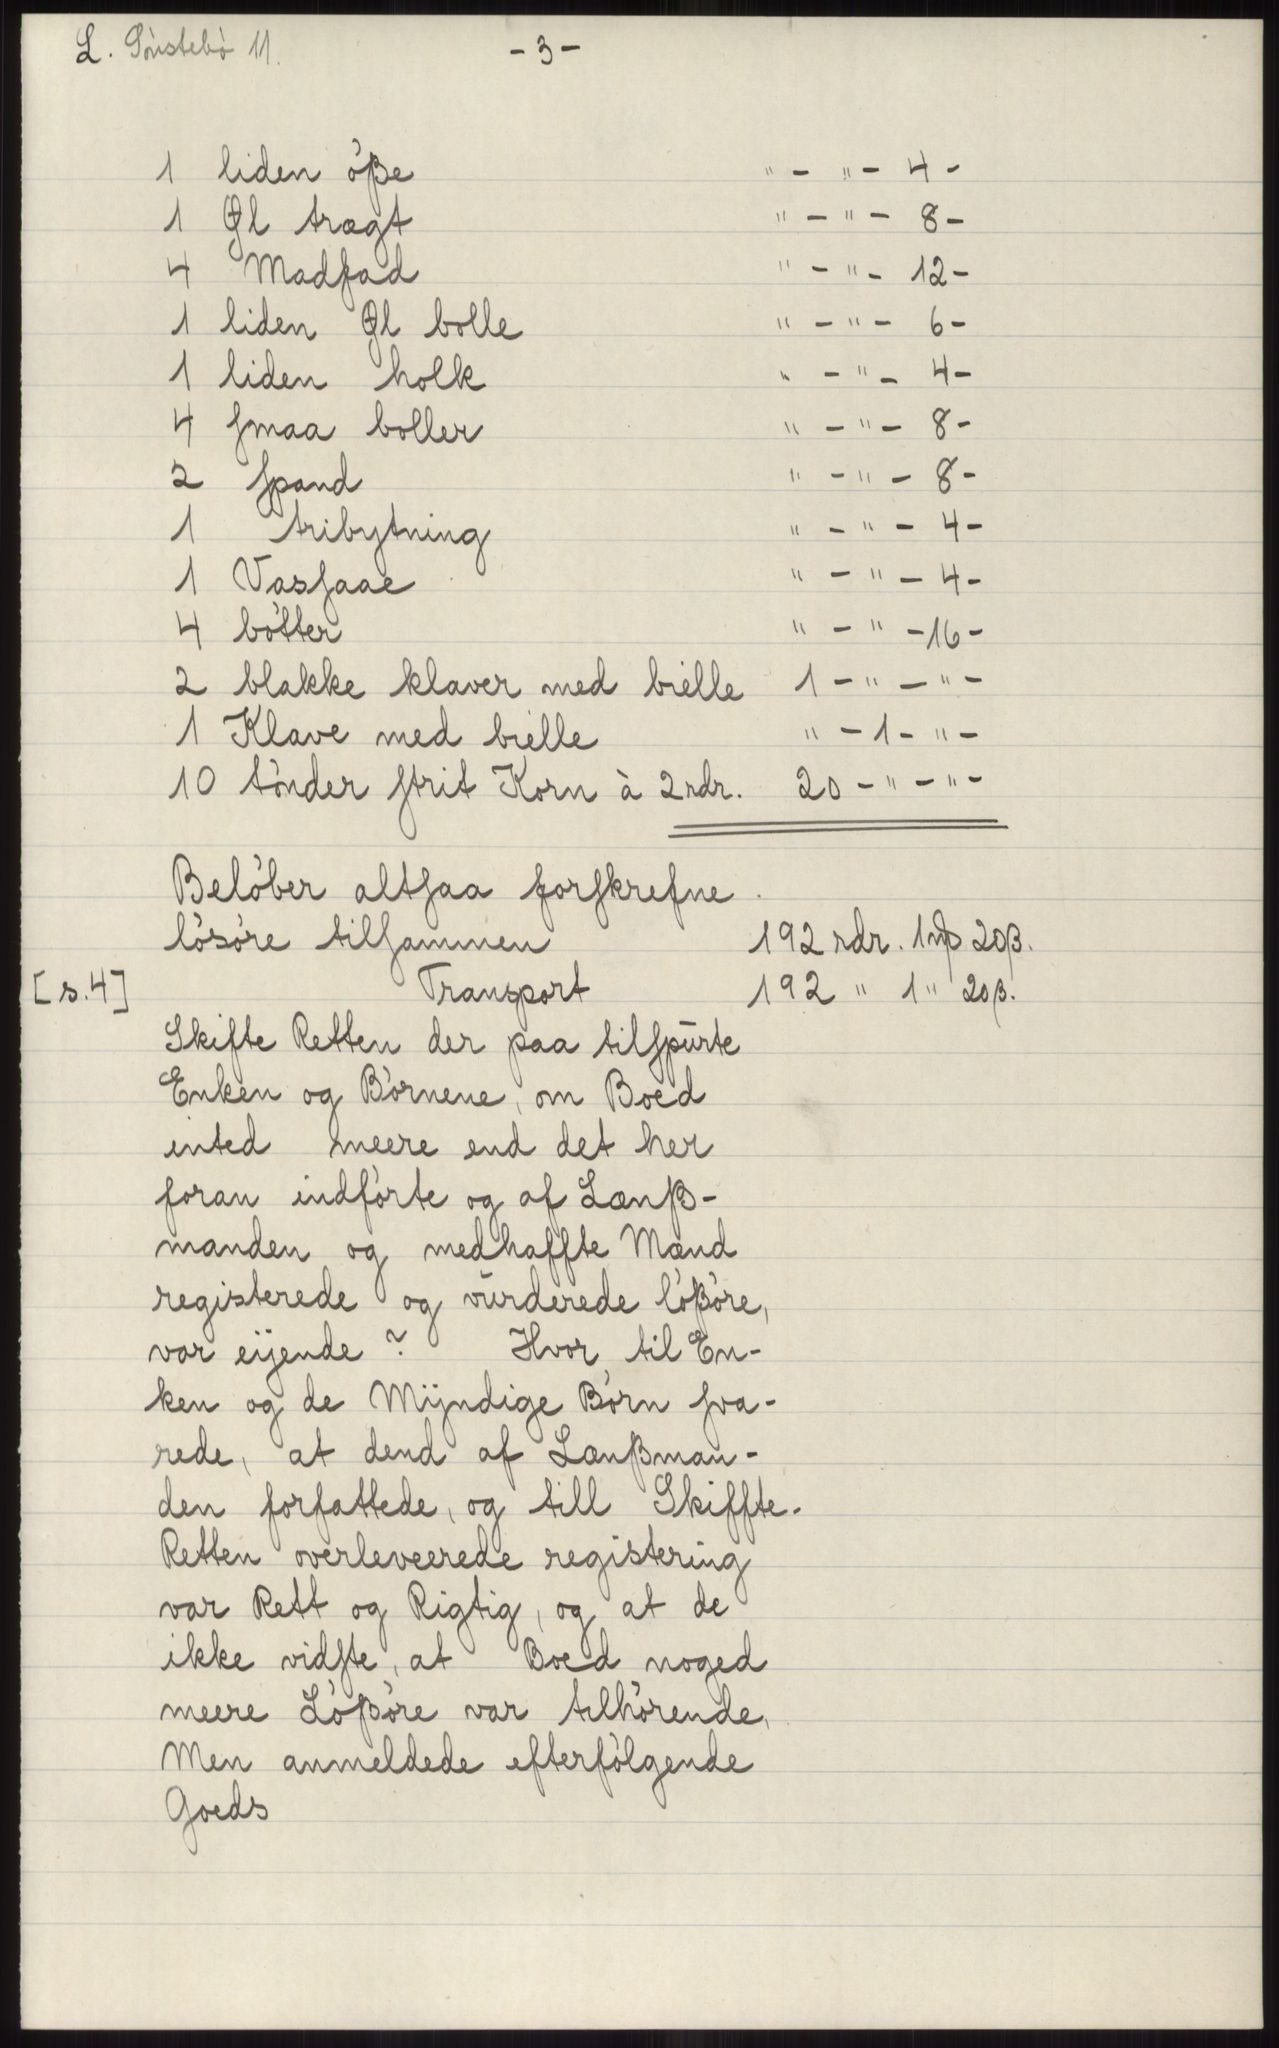 L. Sònstebò 11.
- 3 -
1 liden òße " - " - 4 -
1 Øl trægt " - " - 8 -
4 Madfad " - " - 12 -
1 liden Øl bolle " - " - 6 -
1 liden holk " - " - 4 -
4 ſmaa boller " - " - 8 -
2 ſpand " - " - 8 -
1 tribytning " - " - 4 -
1 Vasſaae " - " - 4 -
4 bòtter " - " - 16 -
2 blakke klaver med bielle 1 - " - " -
1 Klave med bielle " - 1 - " -
10 tònder ſtrit Korn à 2 rdr. 20 - " - " -
Belòber altſaa forſkrefne
lòsòre tilſammen 192 rdr. 1 mſ 20 β.
[s.4] Transport 192 " 1 " 20 β.
Skifte Retten der paa tilſpūrte
Enken og Bòrnene, om Boed
inted meere end det her
foran indfòrte og af Lænß-
manden og medhaffte Mænd
registerede og vūrderede lòßòre,
var eijende ? Hvor til En-
ken og de Mÿndige Bòrn ſva-
rede, at dend af Lænßman-
den forfattede, og till Skiffte-
Retten overleveerede registering
var Rett og Rigtig, og at de
ikke vidſte, at Boed noged
meere Lòßòre var tilhòrende,
Men anmeldede efterfòlgende
Goeds